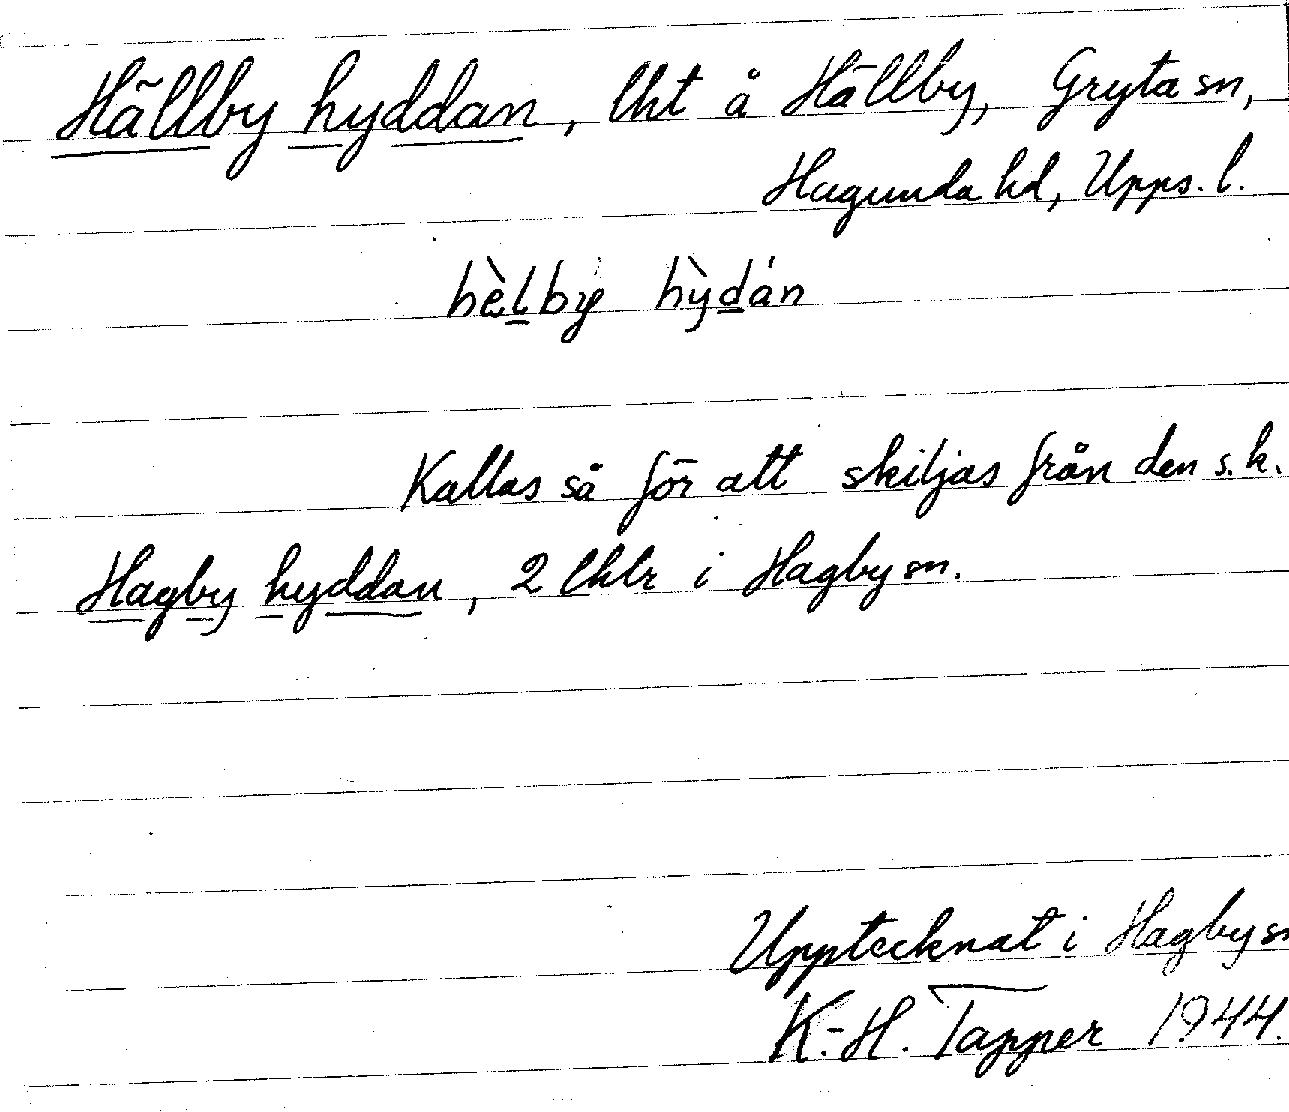 Hällby hyddan, lht å Hällby, Gryta sn,
Hagunda hd, Upps. l.
hèlby hỳdan
Kallas så för att skiljas från den s.k.
Hagby hyddan, 2 lhtr i Hagby sn.
Upptecknat i Hagby sn
K.-H. Tapper 1944.